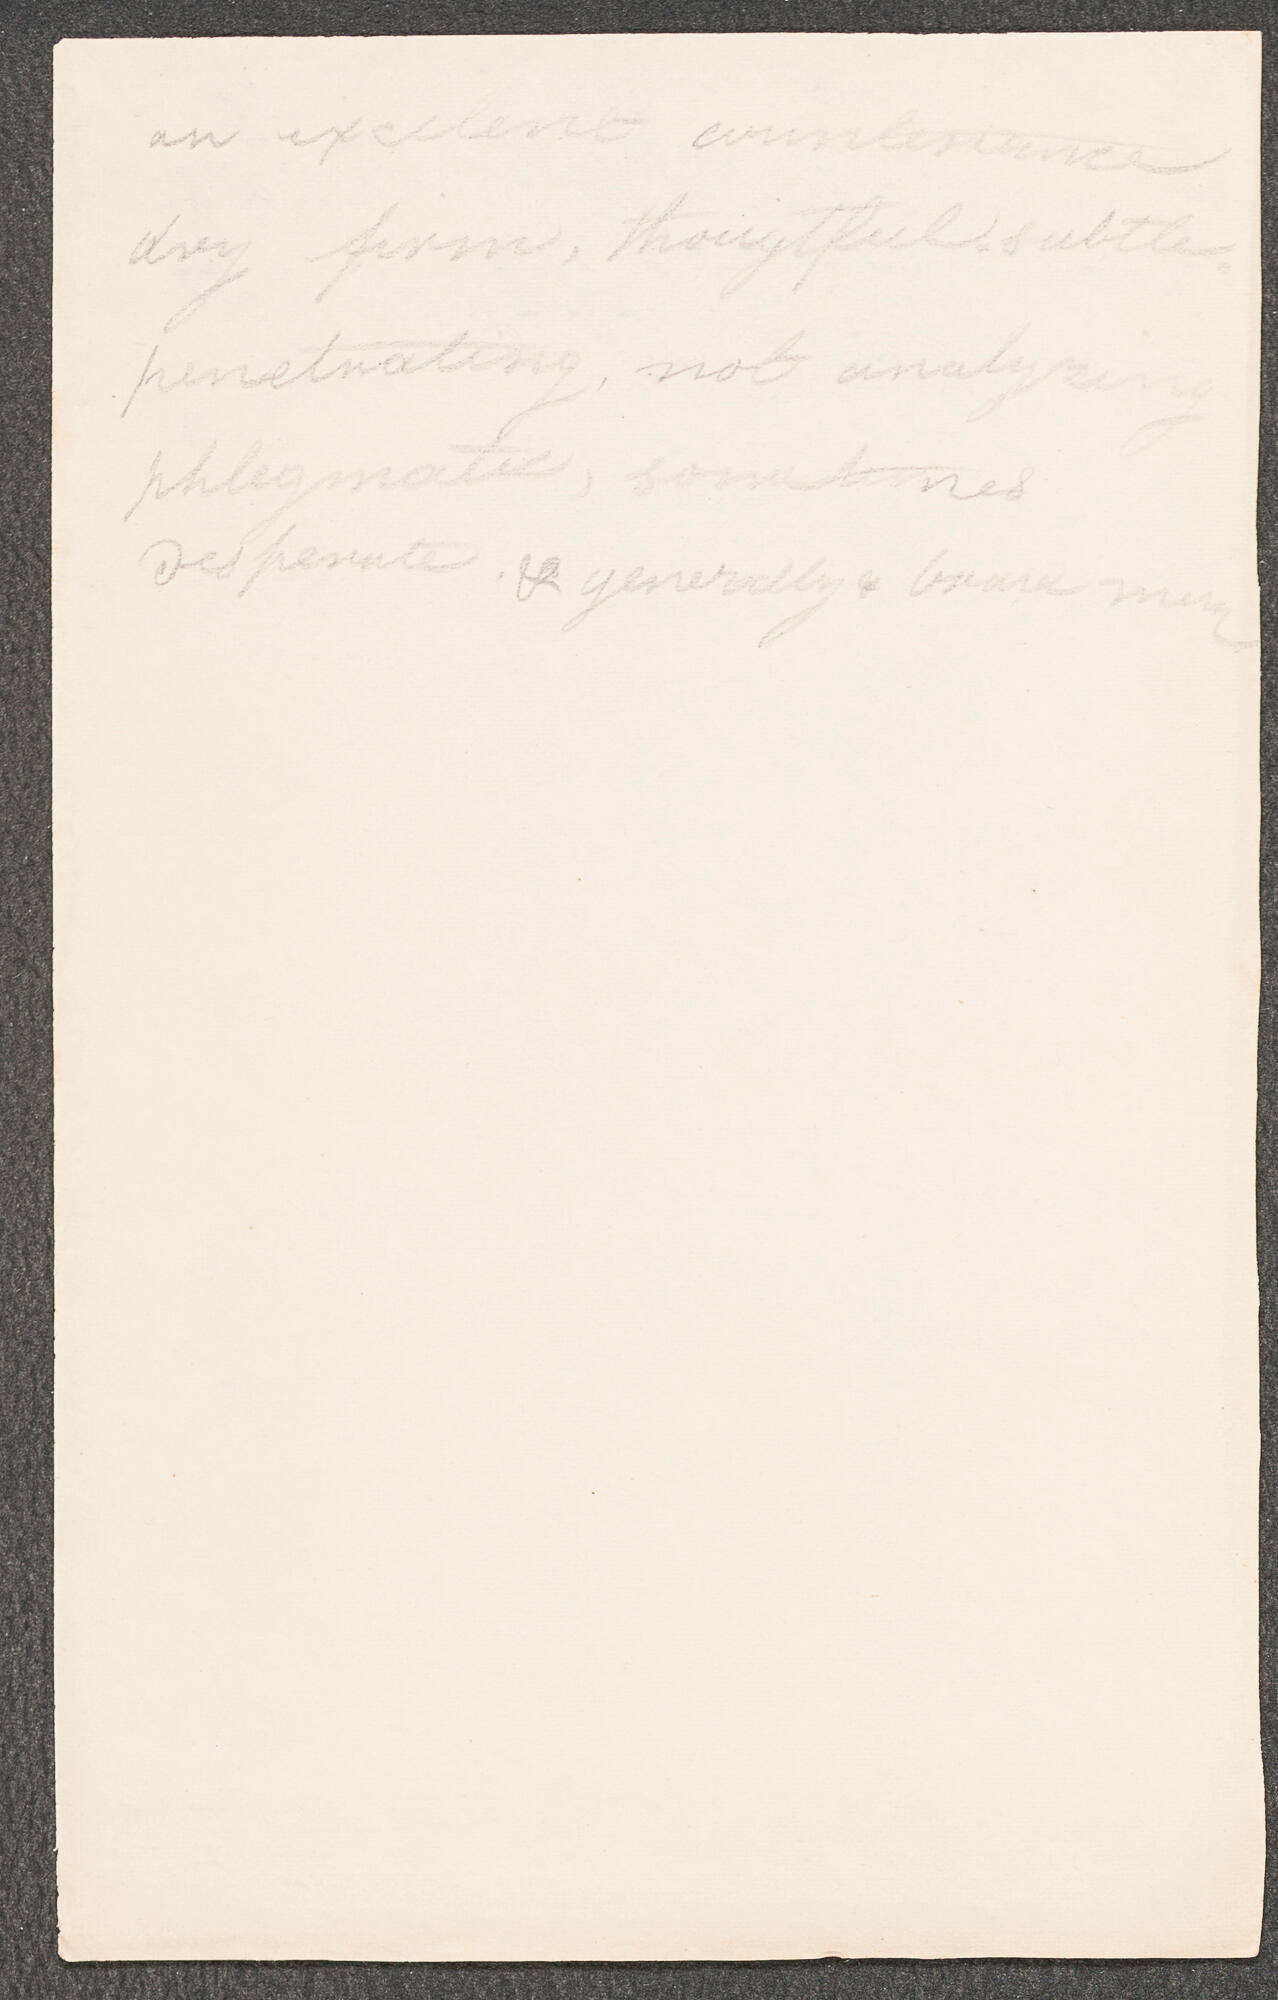 an excellent countenance
dry firm, thougtful. subtle.
penetrating, not analyzing
phlegmatic, sometimes
desperate. & generally & brave